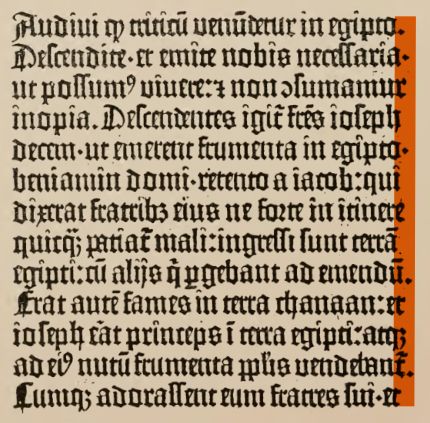 Audiui ꝙ triticū venūdetur in egipto.
Descendite·et emite nobis necessaria·
ut possumꝰ viuere:⁊ non ↄsumamur
inopia. Descendentes igit᷑ fr̄es ioseph
decem·ut emerent frumenta in egipto·
beniamin domi·retento a iacob:qui
dixerat fratribꝫ eius ne forte in itinere
quicqꝫ patiat᷑ mali:ingressi sunt terrā
egipti:cū alijs q̄ ꝑgebant ad emendū.
Erat autē fames in terra chanaan:et
ioseph eāt princeps ī terra egipti:atqꝫ
ad eiꝰ nutū frumenta pplis vendebant᷑.
Cumqꝫ adorassent eum fratres sui·et